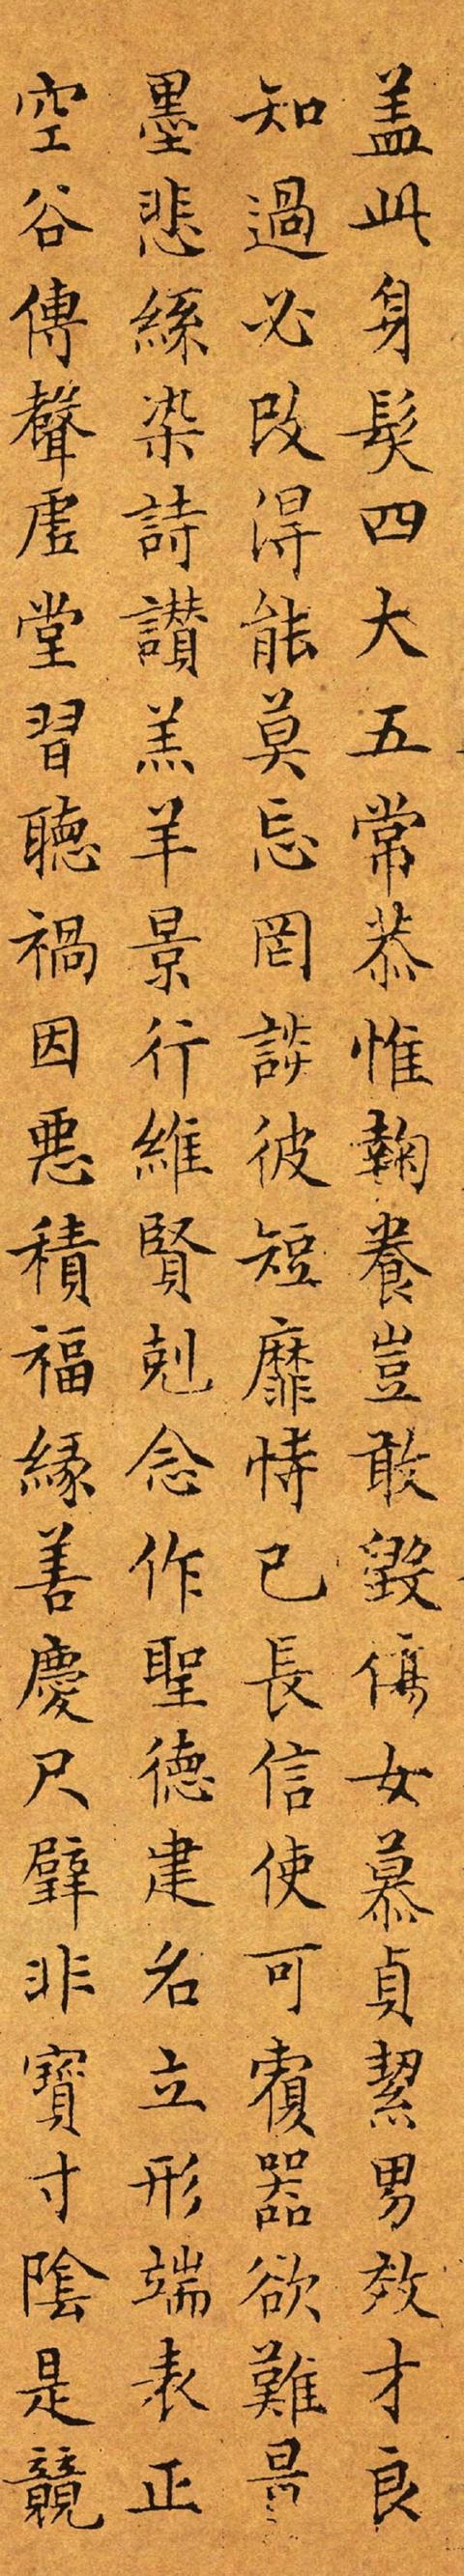 盖此身髮四大五常恭惟鞠養豈敢毀傷女慕貞絜男效才良
知過必改得能莫忘罔談彼短靡恃己長信使可覆器欲難量
墨悲絲染詩讃羔羊景行維賢剋念作聖德建名立形端表正
空谷傳聲虛堂習聽禍因惡積福緣善慶尺璧非寶寸陰是競